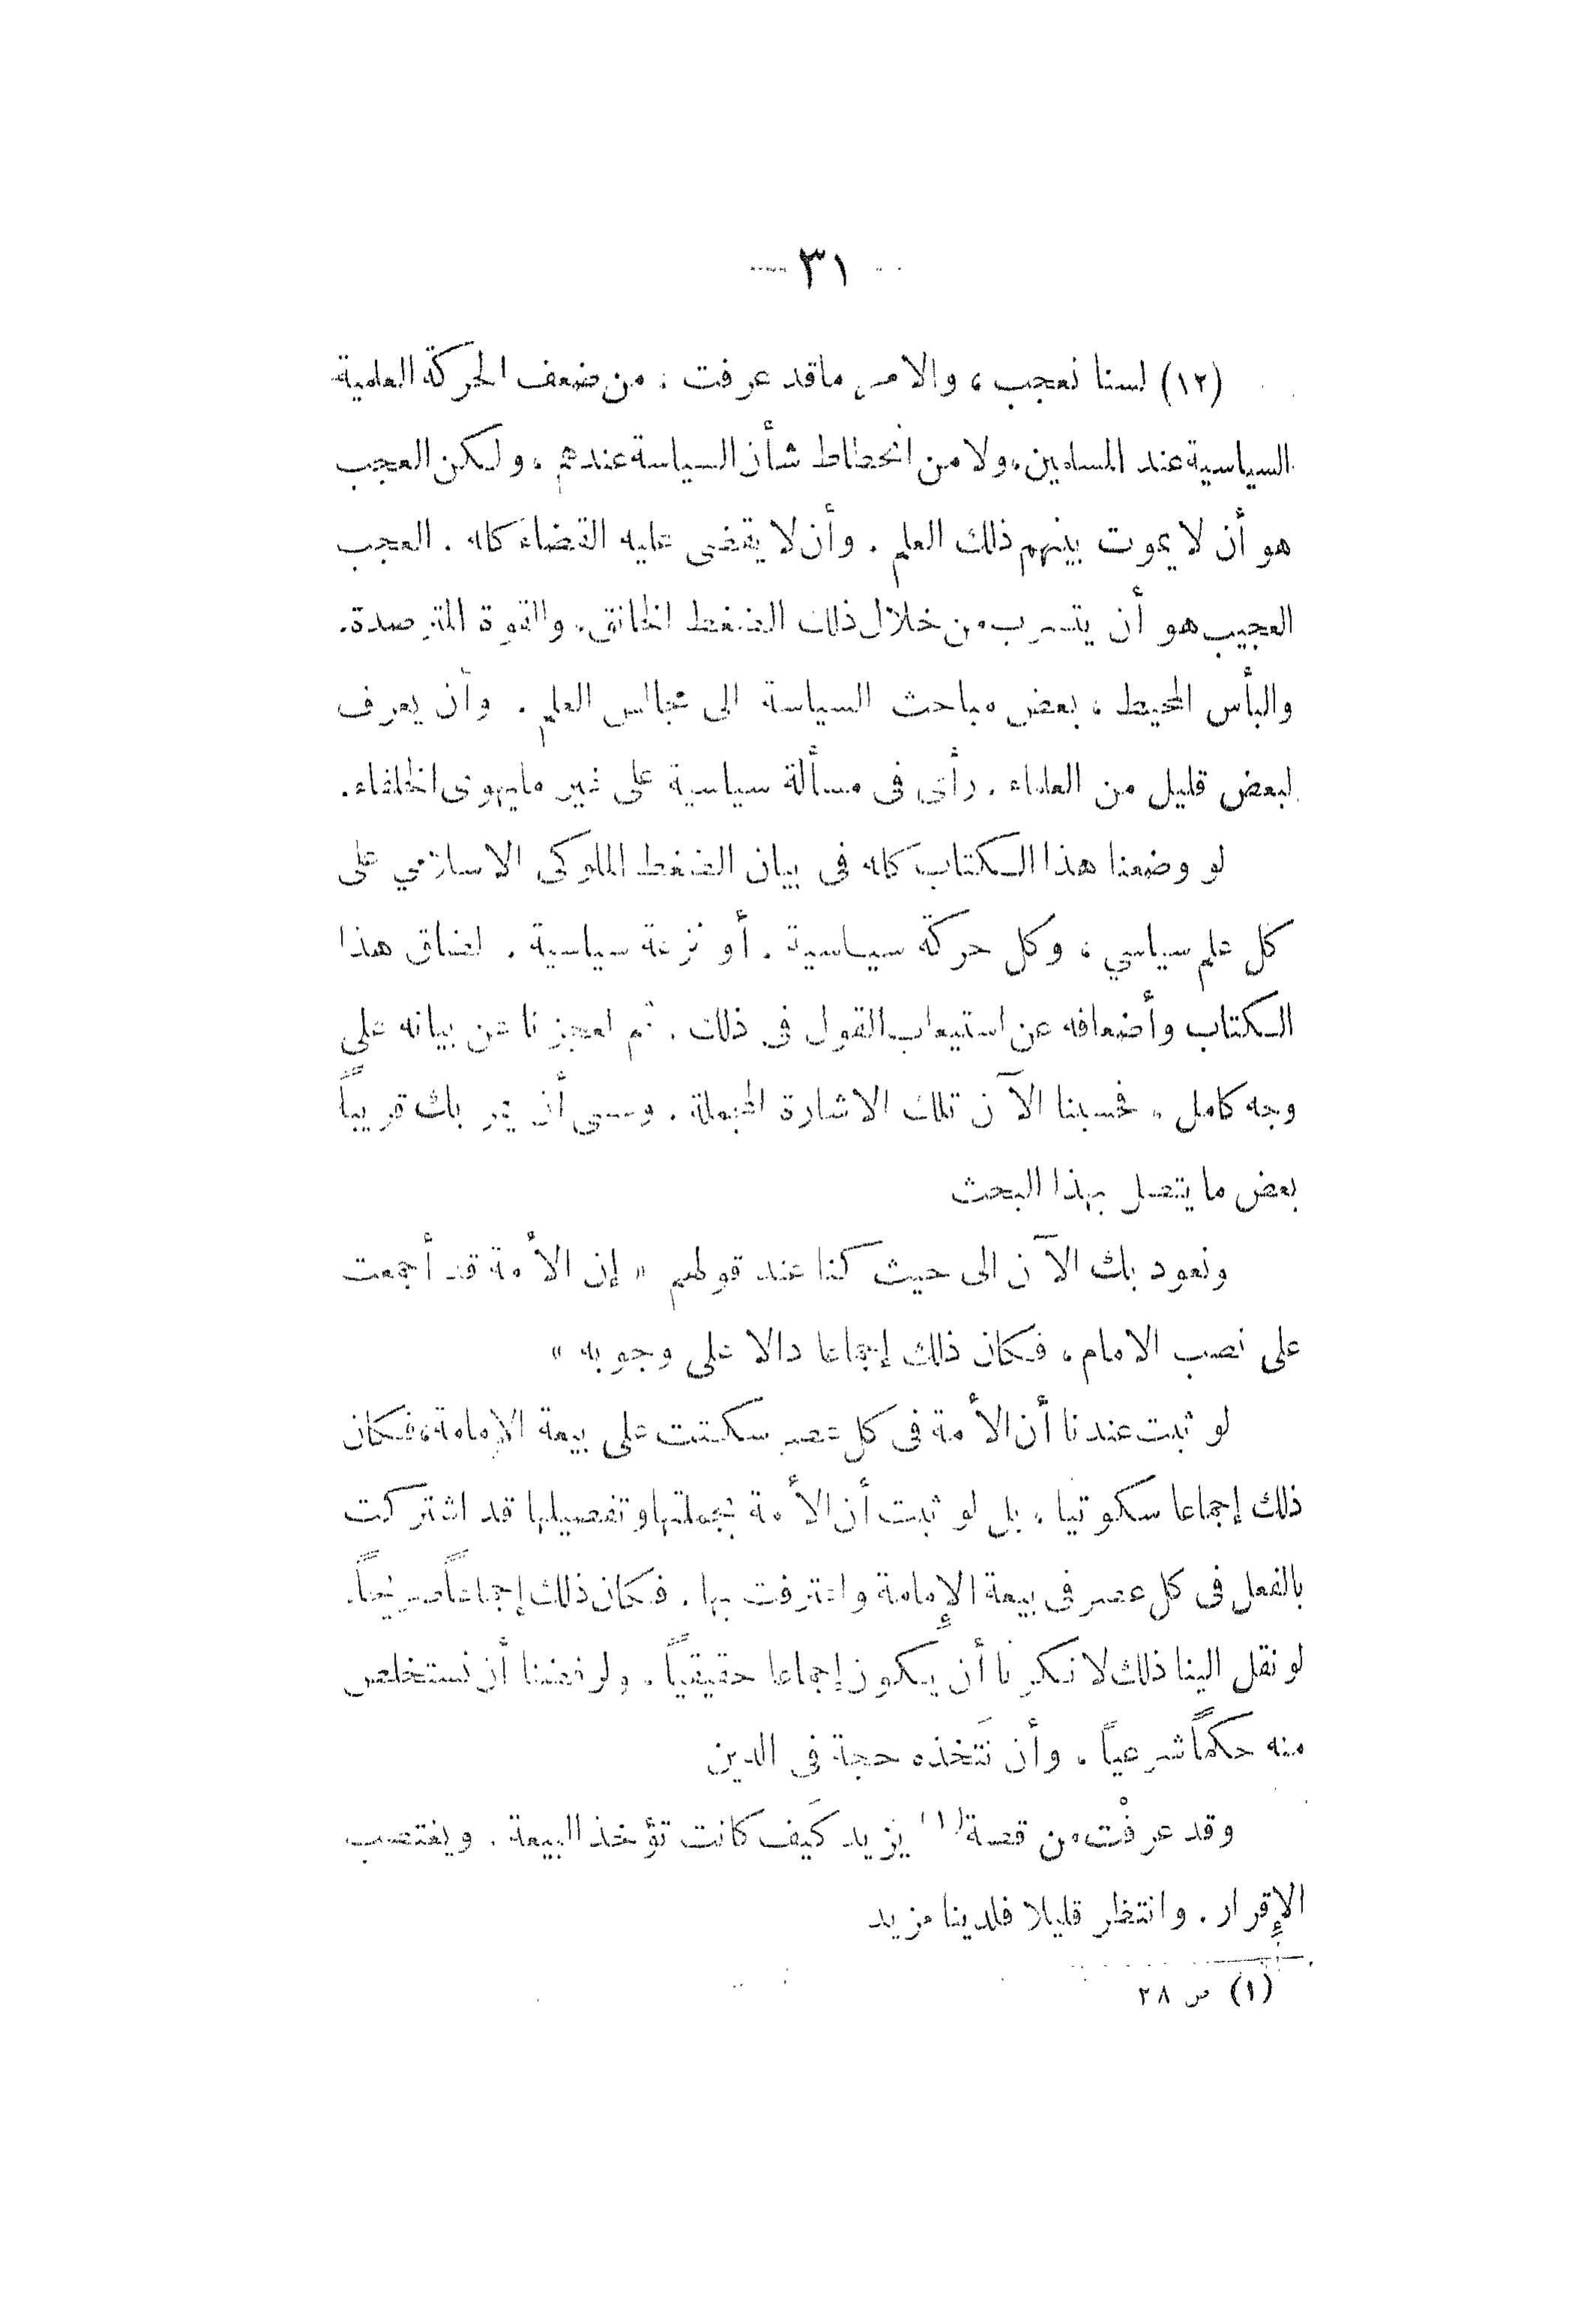 — ٣١ —
(١٢) لسنا نعجب، والامر ماقد عرفت، من ضعف الحركة العلمية
السياسية عند المسلمين، ولا من انحطاط شأن السياسة عندهم، ولكن العجب
هو أن لا يموت بينهم ذلك العلم، وأن لا يقضى عليه القضاء كله. العجب
العجيب هو أن يتسرب من خلال ذلك الضغط الخانق، والقوة المترصدة،
والبأس المحيط، بعض مباحث السياسة الى مجالس العلم، وأن يعرف
لبعض قليل من العلماء، رأى فى مسألة سياسية على غير مايهوى الخلفاء.
لو وضعنا هذا الكتاب كله فى بيان الضغط الملوكى الاسلامي على
كل علم سياسي، وكل حركة سياسية، أو نزعة سياسية، لضاق هذا
الكتاب وأضعافه عن استيعاب القول فى ذلك، ثم لعجزنا عن بيانه على
وجه كامل، فحسبنا الآن تلك الاشارة المجملة، وعسى أن يمر بك قريباً
بعض ما يتصل بهذا البحث
ونعود بك الآن الى حيث كنا عند قولهم « إن الأمة قد أجمعت
على نصب الامام، فكان ذلك إجماعا دالا على وجوبه »
لو ثبت عندنا أن الأمة فى كل عصر سكتت على بيعة الإمامة، فكان
ذلك إجماعا سكوتيا، بل لو ثبت أن الأمة بجملتها وتفصيلها قد اشتركت
بالفعل فى كل عصر فى بيعة الإمامة واعترفت بها، فكان ذلك إجماعاً صريحاً،
لو نقل الينا ذلك لانكرنا أن يكون إجماعا حقيقياً، ولرفضنا أن نستخلص
منه حكماً شرعياً، وأن نَتخذه حجة فى الدين
وقد عرفْت من قصة (١) يزيد كَيف كانت تؤخذ البيعة، ويغتصب
الإقرار. وانتظر قليلا فلدينا مزيد
(١) ص ٢٨